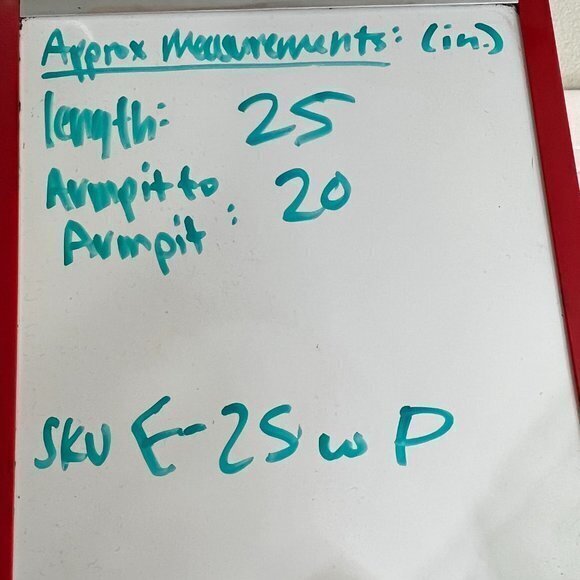 Approx Measurements: (in.)
length: 25
Armpit to 20
Armpit:
SKU E-25 w P